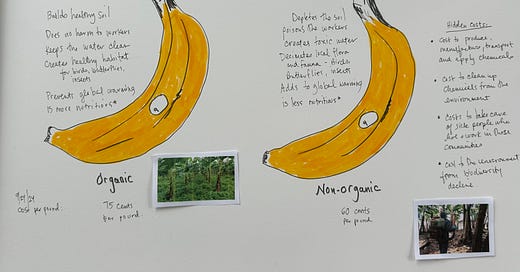 Builds healthy soil
Does no harm to workers
Keeps the water clean
Creates healthy habitat
for birds, butterflies,
insects
Prevents global warming
Is more nutritious*
Organic
9/5/24
Cost per pound.
75 cents
per pound
Depletes the soil
poisons the workers
Creates toxic water
Decimates local flora
and fauna - Birds
Butterflies, insects
Adds to global warming
is less nutritious*
Non-organic
60 cents
per pound
Hidden Costs:
• Cost to produce,
manufacture, transport
and apply chemicals
• Cost to clean up
chemicals from the
environment
• Costs to take care
of sick people who
work in these
communities
• Cost to the environment
from biodiversity
decline